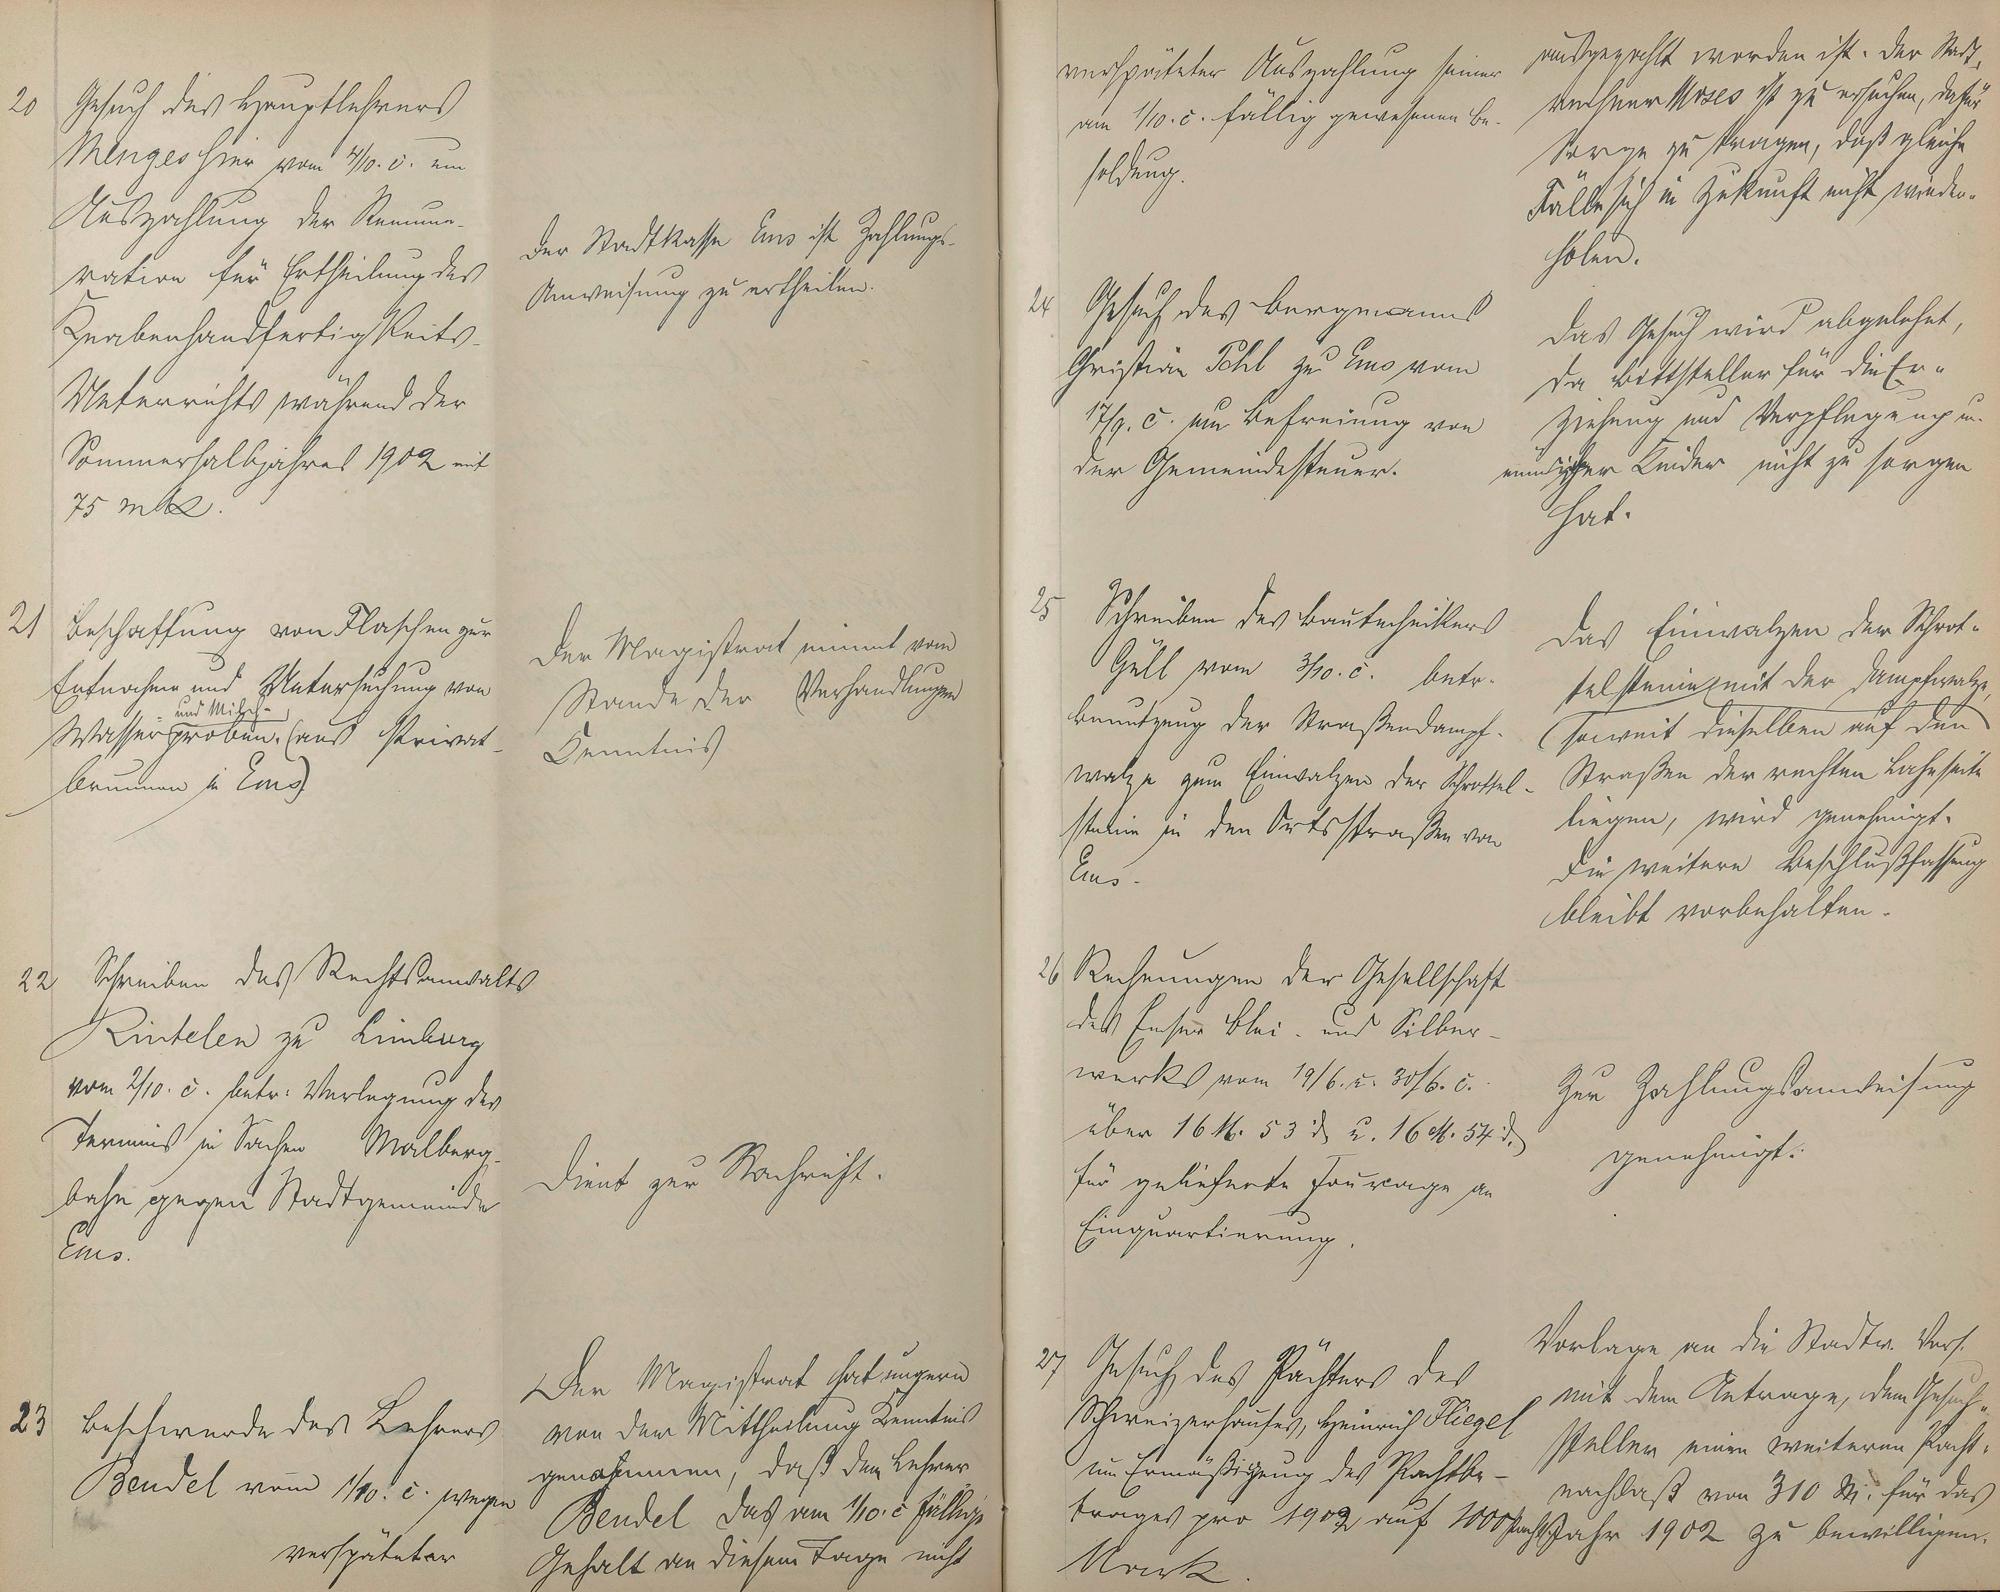 20 Gesuch des Hauptlehrers
Menges hier vom 4/10. c. um
Auszahlung der Remune-
ration für Ertheilung des
Knabenhandfertigkeits-
Unterrichts während des
Sommerhalbjahres 1902 mit
75 Mk.
Der Stadtkasse Ems ist Zahlungs-
Anweisung zu ertheilen.
21 Beschaffung von Flaschen zur
Entnahme und Untersuchung von
- und Milch-
Wasserproben. (aus Privat-
brunnen in Ems)
Der Magistrat nimmt vom
Stande der Verhandlungen
Kenntnis
22 Schreiben des Rechtsanwalts
Rintelen zu Limburg
vom 2/10. c. betr. Verlegung des
Termins in Sachen Malberg-
bahn gegen Stadtgemeinde
Ems.
Dient zur Nachricht.
23 Beschwerde des Lehrers
Bendel vom 1/10. c. wegen
verspäteter
Der Magistrat hat ungern
von der Mittheilung Kenntnis
genommen, daß dem Lehrer
Bendel das am 1/10. c fällige
Gehalt an diesem Tage nicht
verspäteter Auszahlung seiner
am 1/10. c. fällig gewesenen Be-
soldung.
ausgezahlt worden ist. Der Stadt-
rechner Moses ist zu ersuchen, dafür
Sorge zu tragen, daß gleiche
Fälle sich in Zukunft nicht wieder-
holen.
24 Gesuch des Bergmanns
Christian Pohl zu Ems vom
17/9. c. um Befreiung von
der Gemeindesteuer.
Das Gesuch wird abgelehnt,
da Bittsteller für die Er-
ziehung und Verpflegung
Kinder nicht zu sorgen
hat.
25 Schreiben des Bautechnikers
Güll vom 3/10. c. betr.
Benutzung der Straßendampf-
walze zum Einwalzen der Schrottel-
steine in den Ortsstraßen von
Ems.
Das Einwalzen der Schrot-
telsteine mit der Dampfwalze,
(soweit dieselben auf den
Straßen der rechten Lahnseite
liegen, wird genehmigt.
Die weitere Beschlußfassung
bleibt vorbehalten.
26 Rechnungen der Gesellschaft
des Emser Blei- und Silber-
werks vom 19/6. u. 30/6. c.
über 16 M. 53 d u. 16 M. 54 d.
für gelieferte Fourage an
Einquartierung.
Zur Zahlungsanweisung
genehmigt.
27 Gesuch des Pächters des
Schweizerhauses, Heinrich Fliegel
um Ermäßigung des Pachtbe-
trages pro 1902 auf 1000
Mark.
Vorlage an die Stadtv. Vers.
mit dem Antrage, dem Gesuch-
steller einen weiteren Pacht-
nachlaß von 310 M. für das
Pachtjahr 1902 zu bewilligen.